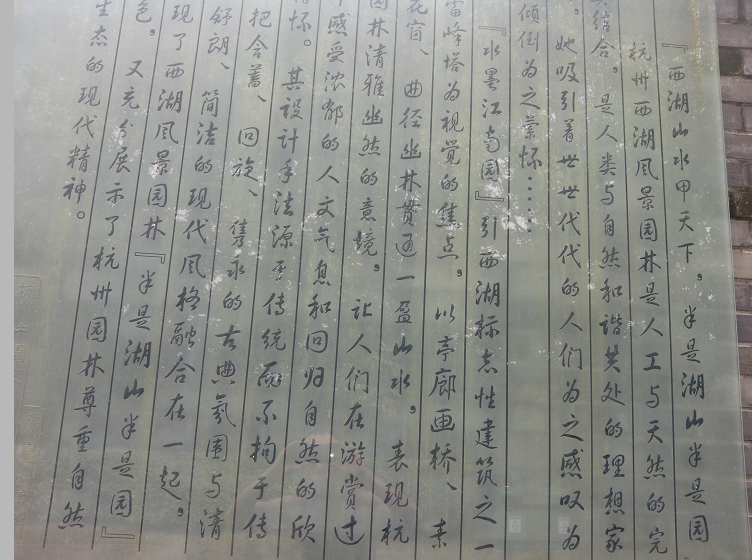 『西湖山水甲天下，半是湖山半是园
杭州西湖风景园林是人工与天然的完
美结合。是人类与自然和谐共处的理想家
。她吸引着世世代代的人们为之感叹为
倾倒为之萦怀……
『水墨江南园』引西湖标志性建筑之一
雷峰塔为视觉的焦点。以亭廊画桥、素
花窗、曲径幽林贯通一盈山水，表现杭
园林清雅幽然的意境。让人们在游赏过
中感受浓郁的人文气息和回归自然的欣
情怀。其设计手法源于传统而不拘于传
把含蓄、回旋、隽永的古典氛围与清
舒朗、简洁的现代风格融合在一起，
现了西湖风景园林『半是湖山半是园』
色，又充分展示了杭州园林尊重自然
生态的现代精神。